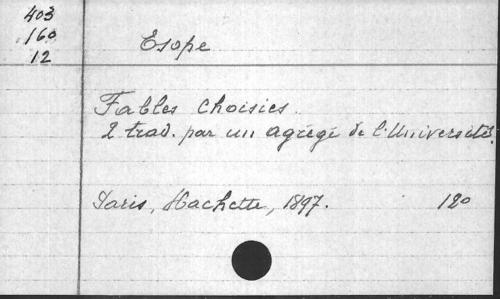 403
160
12
Esope
Fables choisies.
2 trad. par un agrégé de l'Université.
Paris, Hachette, 1897. 120